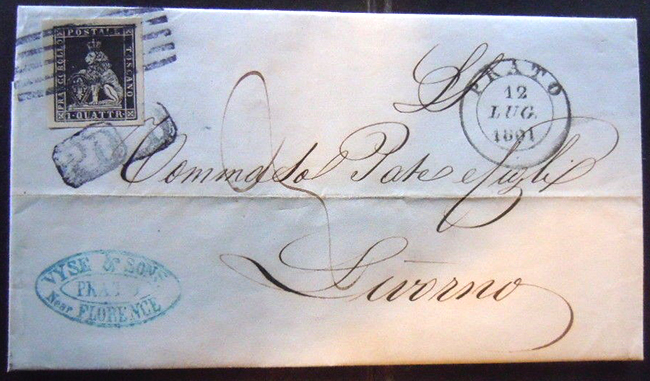 FRANCOBOLLO
POSTALE
TOSCANO
1·QUATTR.
PRATO
12
LUG.
1861
P.D.
Tommaso Pate e figli
Livorno
VYSE & SONS
PRATO
Near FLORENCE